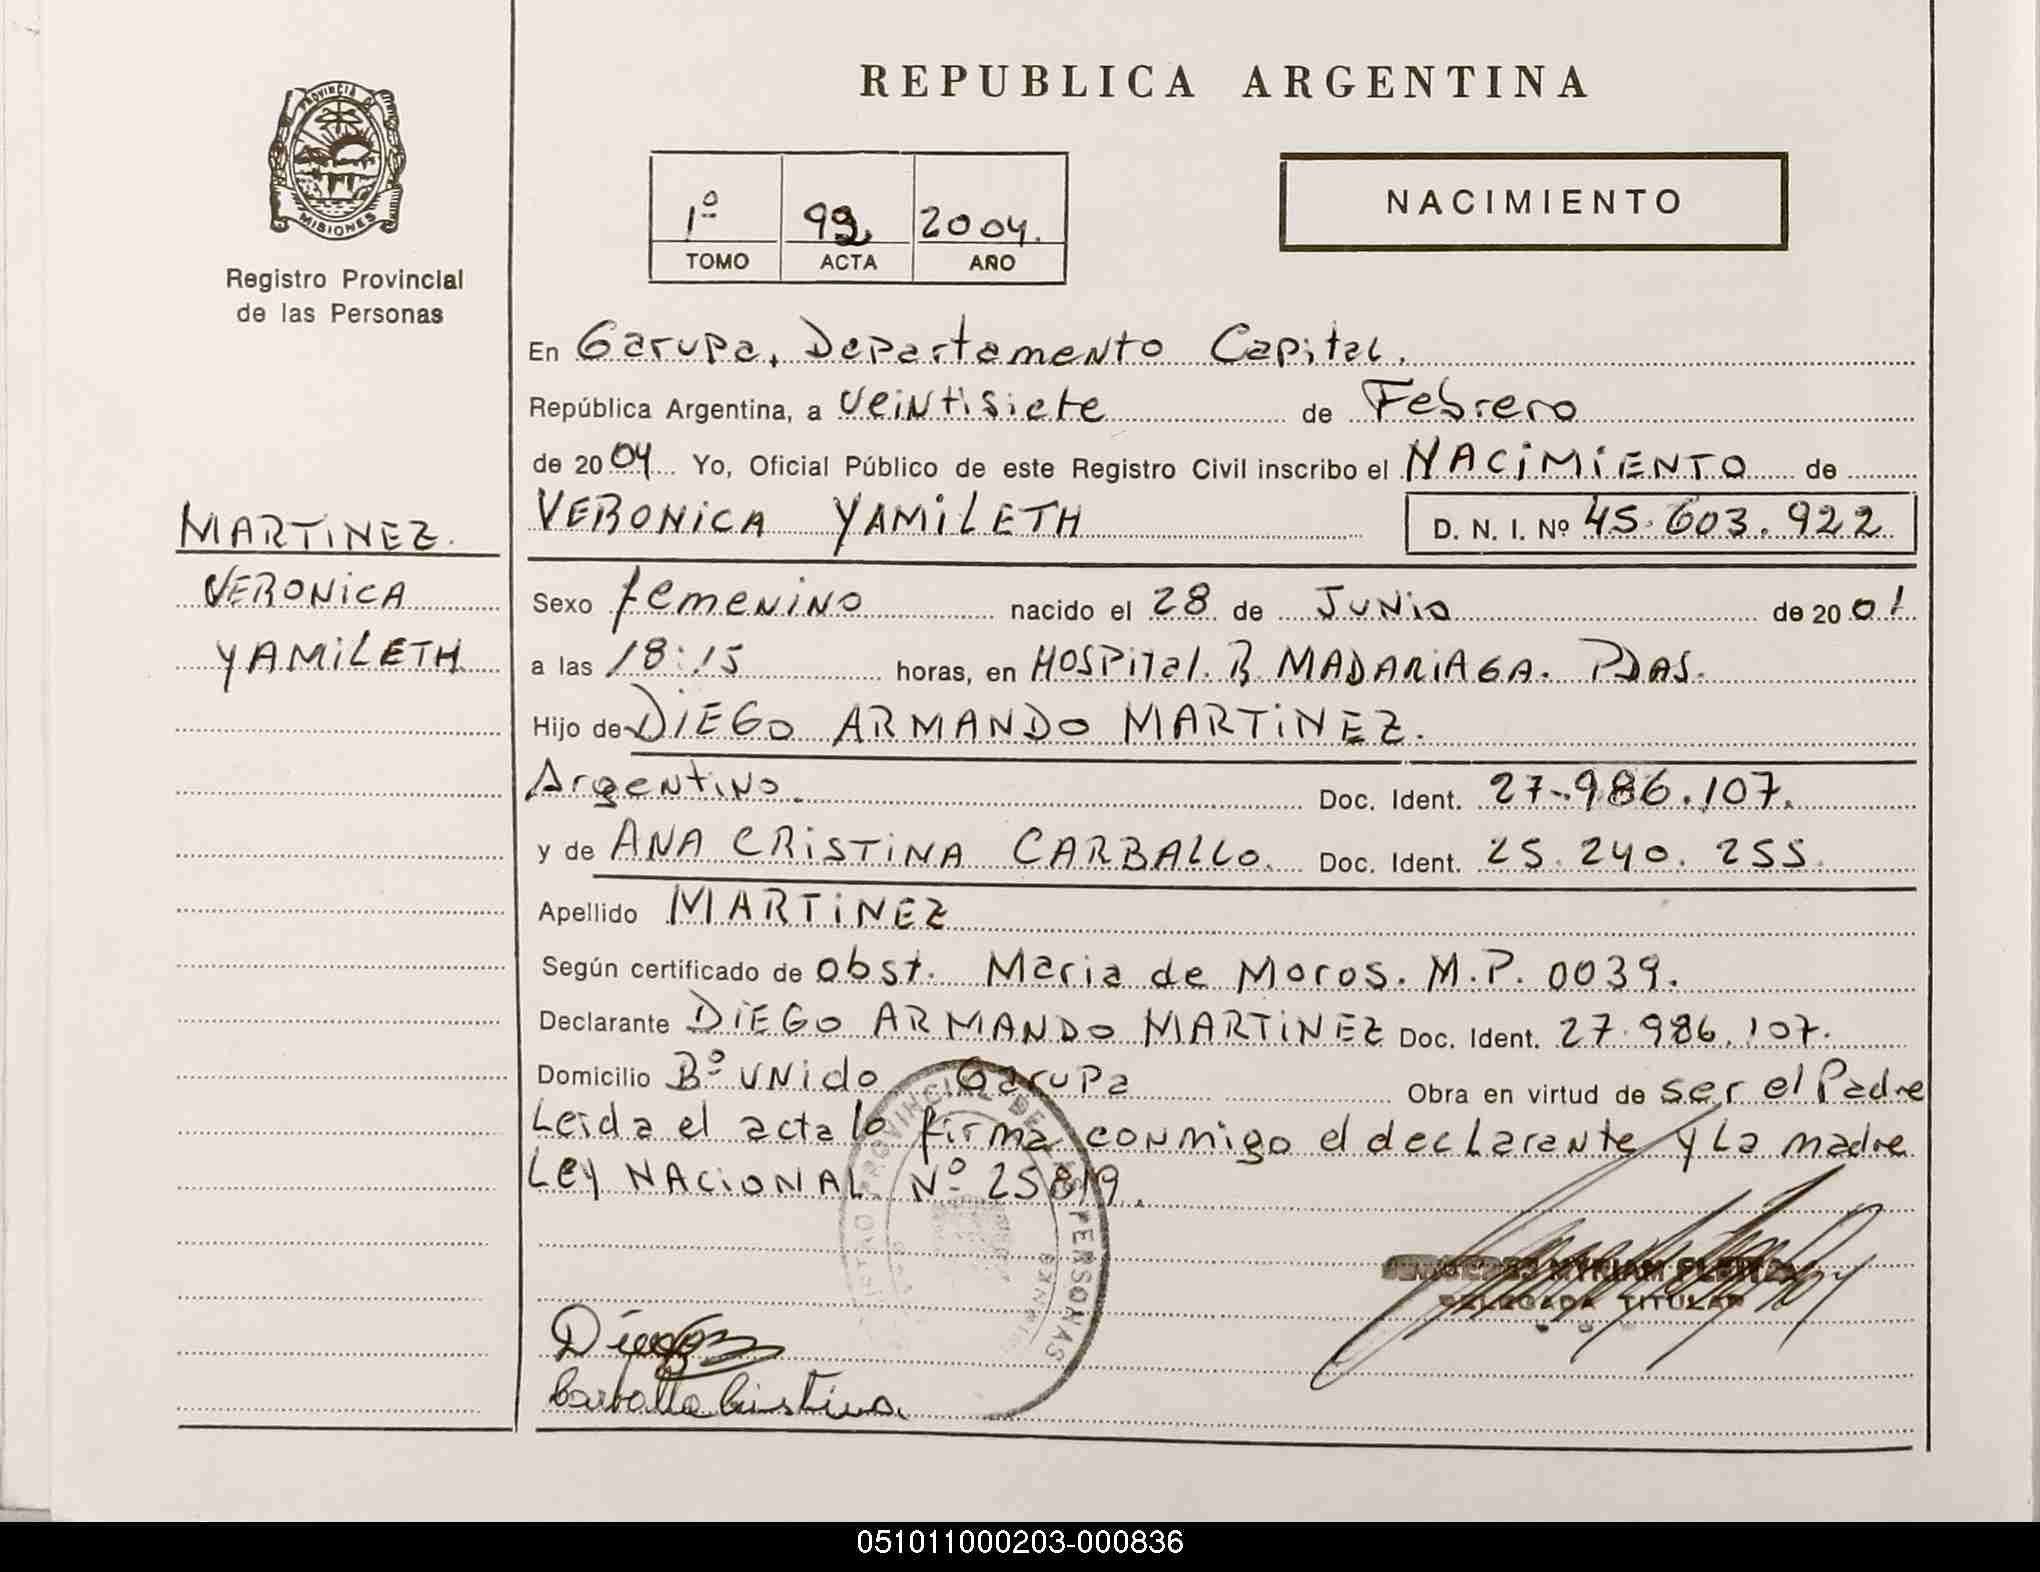 REPUBLICA ARGENTINA
PROVINCIA DE
MISIONES
Registro Provincial
de las Personas
1º 2004.
TOMO ACTA AÑO
NACIMIENTO
MARTINEZ.
VERONICA
YAMILETH
En Garupa, Departamento Capital.
República Argentina, a veintisiete de Febrero
de 2004 Yo, Oficial Público de este Registro Civil inscribo el NACIMIENTO de
VERONICA YAMILETH D. N. I. Nº 45.603.922
Sexo femenino nacido el 28 de Junio de 2001
a las 18:15 horas, en HOSPital. R. MADARIAGA. PDAS.
Hijo de DIEGO ARMANDO MARTINEZ.
Argentino. Doc. Ident. 27.986.107.
y de ANA CRISTINA CARBALLO. Doc. Ident. 25.240.255.
Apellido MARTINEZ
Según certificado de obst. Maria de Moros. M.P. 0039.
Declarante DIEGO ARMANDO MARTINEZ Doc. Ident. 27.986.107.
Domicilio Bº UNido Garupa Obra en virtud de ser el Padre
Leida el acta lo firma conmigo el declarante y La madre
Ley NACIONAL Nº 25819.
REGISTRO PROVINCIAL DE LAS PERSONAS
MYRIAM
DELEGADA TITULAR
Diego
Carballo Cristina.
051011000203-000836